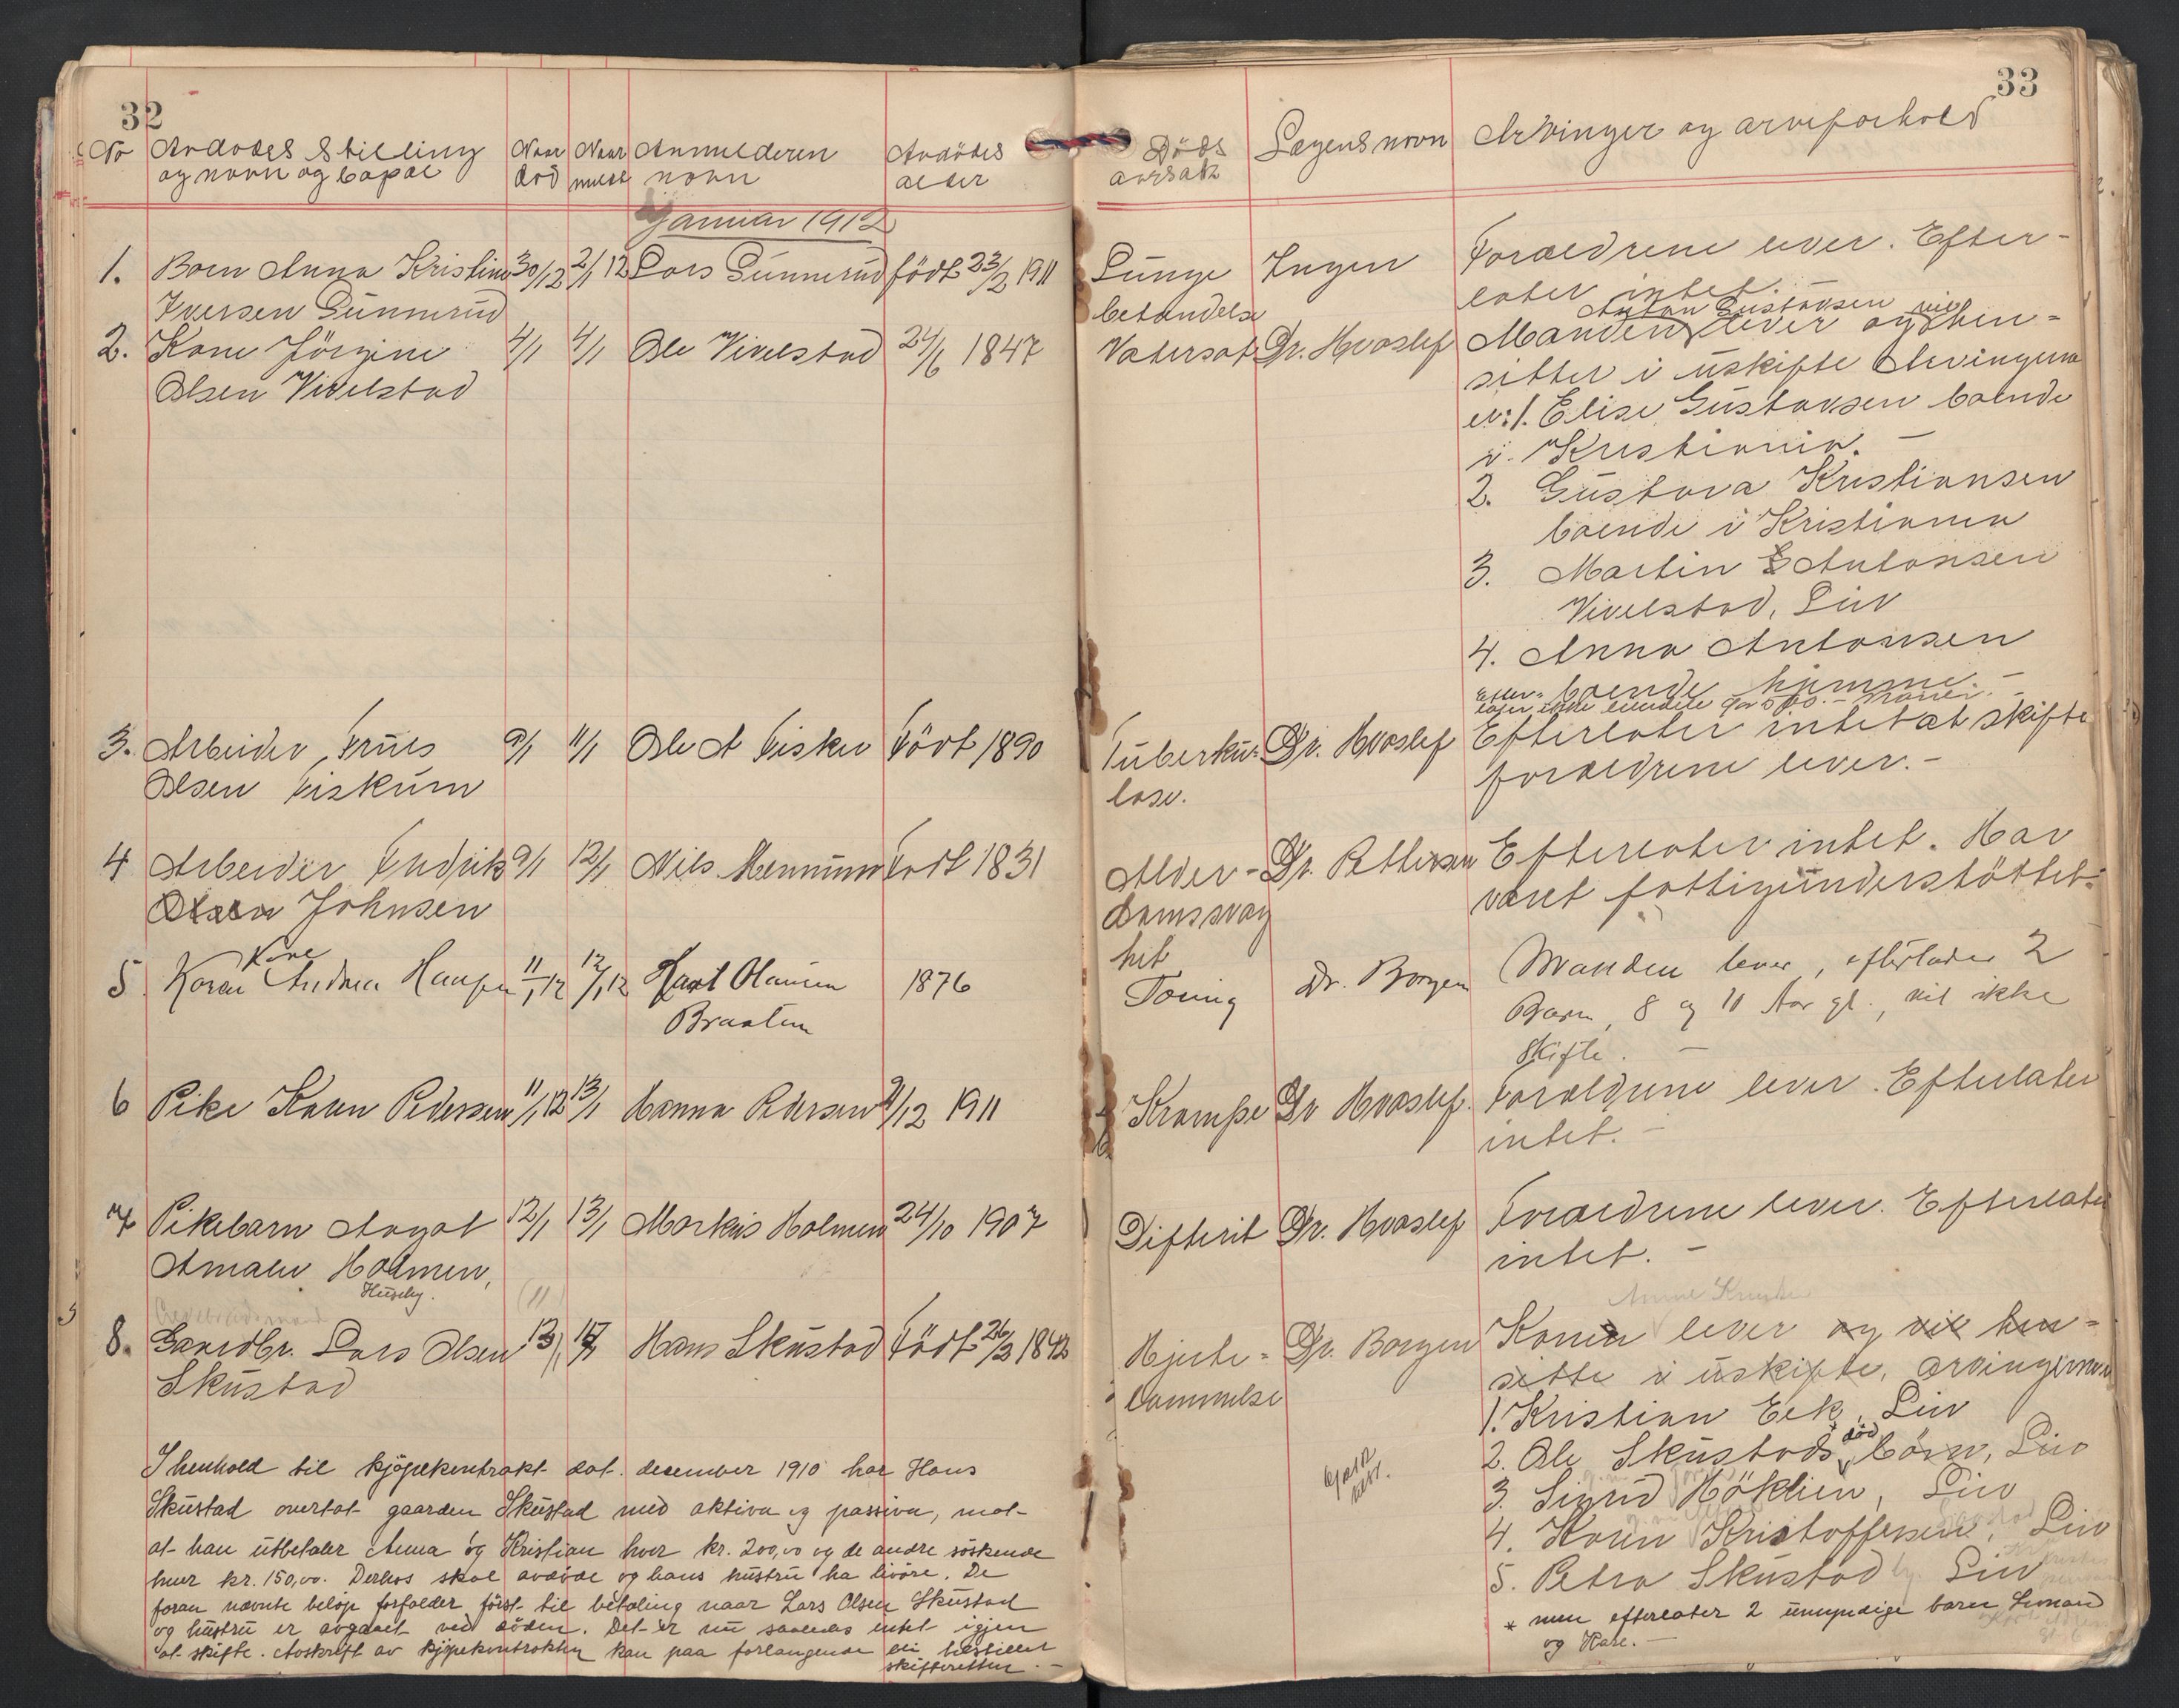 32
No Avdødes Stilling Naar Naar Anmelderen Avdødes
og navn og bopæl død meldt navn alder
Januar 1912
1. Barn Anna Kristine 30/12 2/1 12 Lars Gunnerud født 23/2 1911
Iversen Gunnerud
2. Kone Jörgine 4/1 4/1 Ole Vivelstad 24/6 1847
Olsen Vivelstad
3. Arbeider, Truls 9/1 11/1 Ole A Fisku Født 1890
Olsen Fiskum
4 Arbeider Fredrik 9/1 12/1 Nils Mennum Født 1831
Olsen Johnsen
Kone
5. Karen Andrea Hansen 11/1 12 12/1 12 Karl Olausen 1876
Braaten
6 Pike Karen Pedersen 11/1 12 13/1 Hanna Pedersen 9/12 1911
7 Pikebarn Aagot 12/1 13/1 Markus Holmen 24/10 1907
Amalie Holmen,
Huseby.
(11)
8. Gaardbr. Lars Olsen 13/1 Hans Skustad Født 26/3 1842
Skustad
I henhold til kjøpekontrakt dat. december 1910 har Hans
Skustad overtat gaarden Skustad med aktiva og passiva, mot
at han utbetaler Anna og Kristian hver kr. 200,00 og de andre söskende
hver kr. 150,00. Derhos skal avdöde og hans hustru ha livöre. De
foran nævnte belöp forfalder först til betaling naar Lars Olsen Skustad
og hustru er avgaaet ved döden. Det er nu saaledes intet igjen
at skifte. Avskrift av kjöpekontrakten kan paa forlangende bli tilstillet
skifteretten.—
33
Døds Lægens navn Arvinger og arveforhold
aarsak
Lunge Ingen Forældrene lever. Efter-
betændelse later intet.
Anton Gustavsen vil
Vatersot Dr. Hvoslef Manden lever og hen-
sitter i uskifte Arvingerne
er: 1. Elise Gustavsen boende
i Kristiania.—
2. Gustava Kristiansen
boende i Kristiania
3. Martin Antonsen
Vivelstad, Lier
4. Anna Antonsen
boende hjemme.—
Tuberku- Dr. Hvoslef Efterlater intet at skifte
lose. forældrene lever.-
Alder- Dr. Pettersen Efterlater intet. Har
domssvag været fattigunderstöttet.
het
Tæring Dr. Borgen Manden lever, efterlader 2
Barn, 8 og 10 Aar gl., vil ikke
skifte.—
Krampe Dr Hvoslef. Forældrene lever. Efterlater
intet.—
Difterit Dr. Hvoslef Forældrene lever. Efterlater
intet.—
Hjerte- Dr. Borgen Konen lever og vil hen-
lammelse sitte i uskifte, arvingerne
1. Kristian Eek, Lier
død
2. Ole Skustads börn, Lier
3. Sigrid Höklien, Lier
4. Karen Kristoffersen, Lier
5. Petra Skustad Lier
* men efterlater 2 umyndige barn
og Kare.—